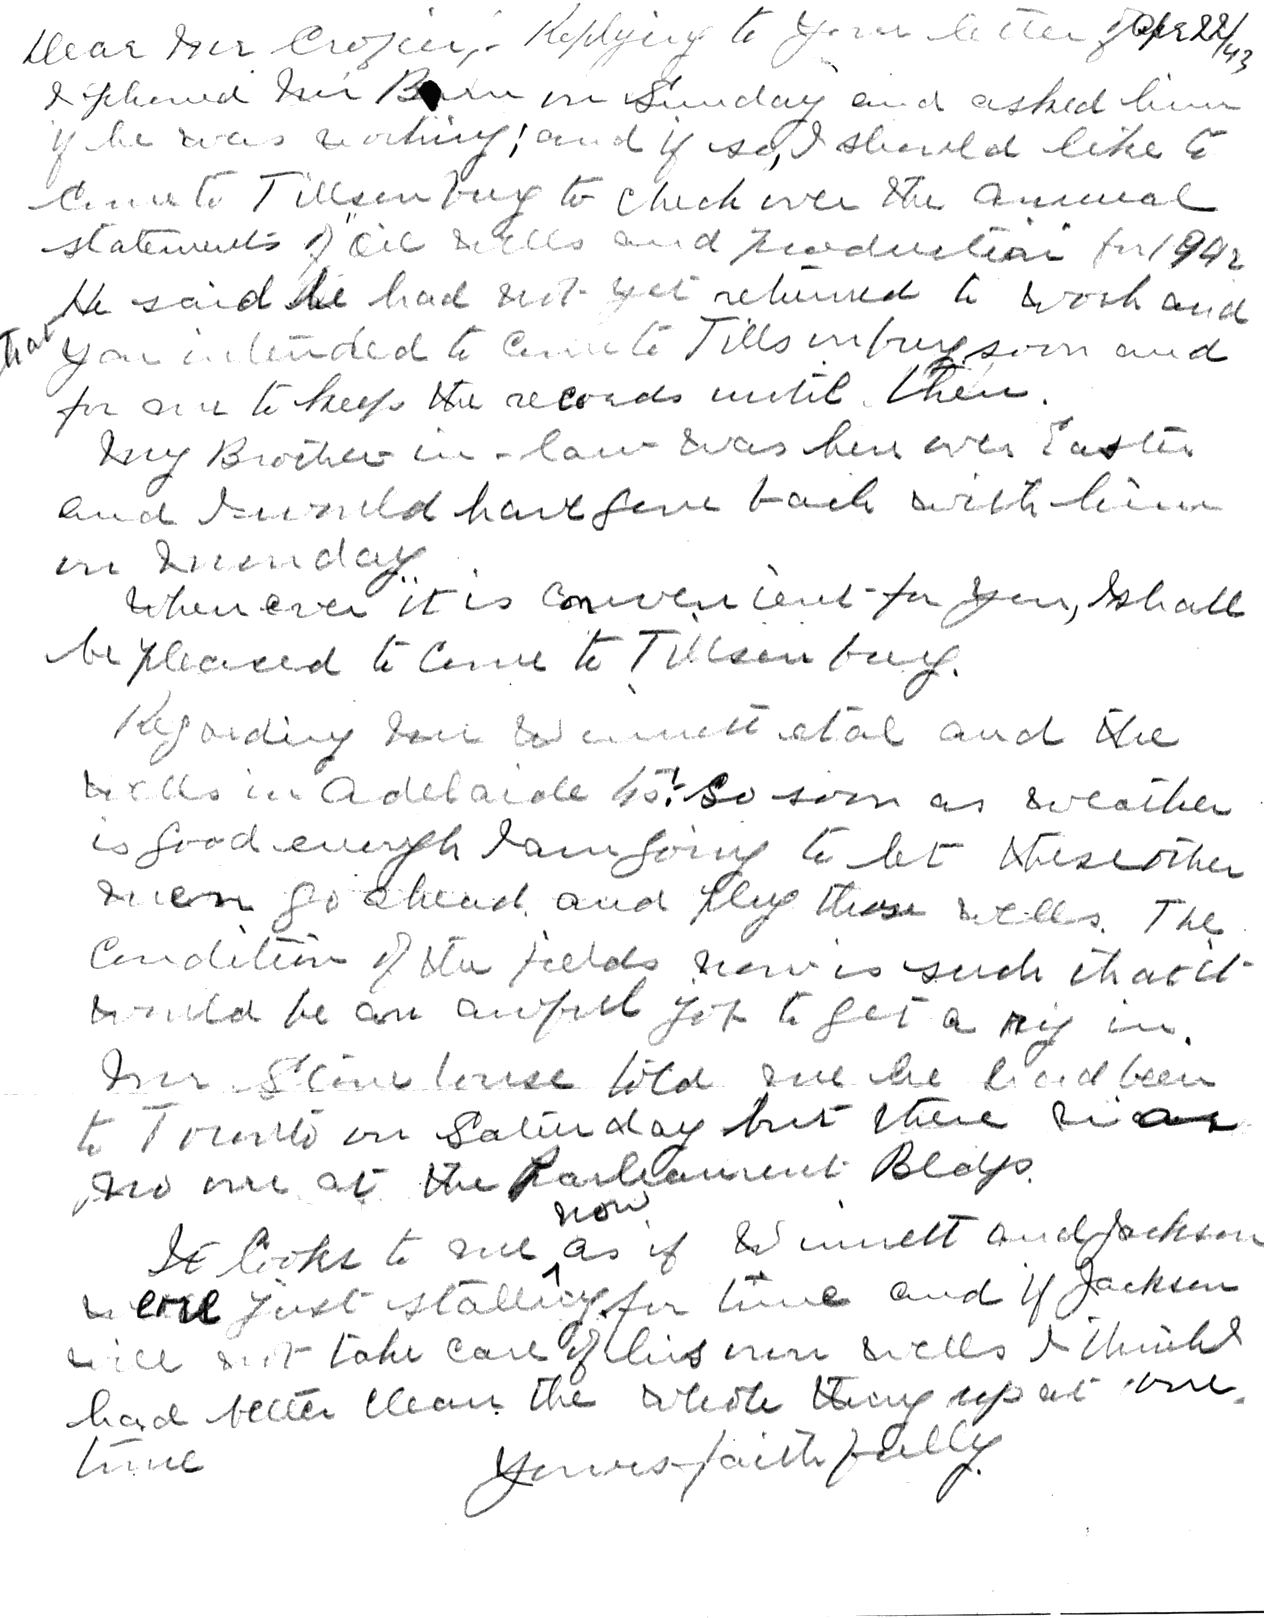 Dear Mr Crozier,- Replying to your letter of Apr 22/43
I phoned Mr on Sunday and asked him
if he was working; and if so, I should like to
come to Tillsonburg to check over the annual
statements of "oil wells and production" for 1942
He said he had not yet returned to work and
that you intended to come to Tillsonburg soon and
for me to keep the records until then.
My Brother in-law was here over Easter
and I would have gone back with him
on Monday
Whenever it is convenient for you, I shall
be pleased to come to Tillsonburg.
Regarding Mr Winnett etal and the
wells in Adelaide So soon as weather
is good enough I am going to let these other
men go ahead and plug those wells. The
condition of the fields now is such that it
would be an awful job to get a rig in.
Mr Stonehouse told me he had been
to Toronto on Saturday but there was
no one at the Parliament Bldgs.
It looks to me now as if Winnett and Jackson
were just stalling for time and if Jackson
will not take care of his own wells I think I
had better clean the whole thing up at one
time
Yours faithfully